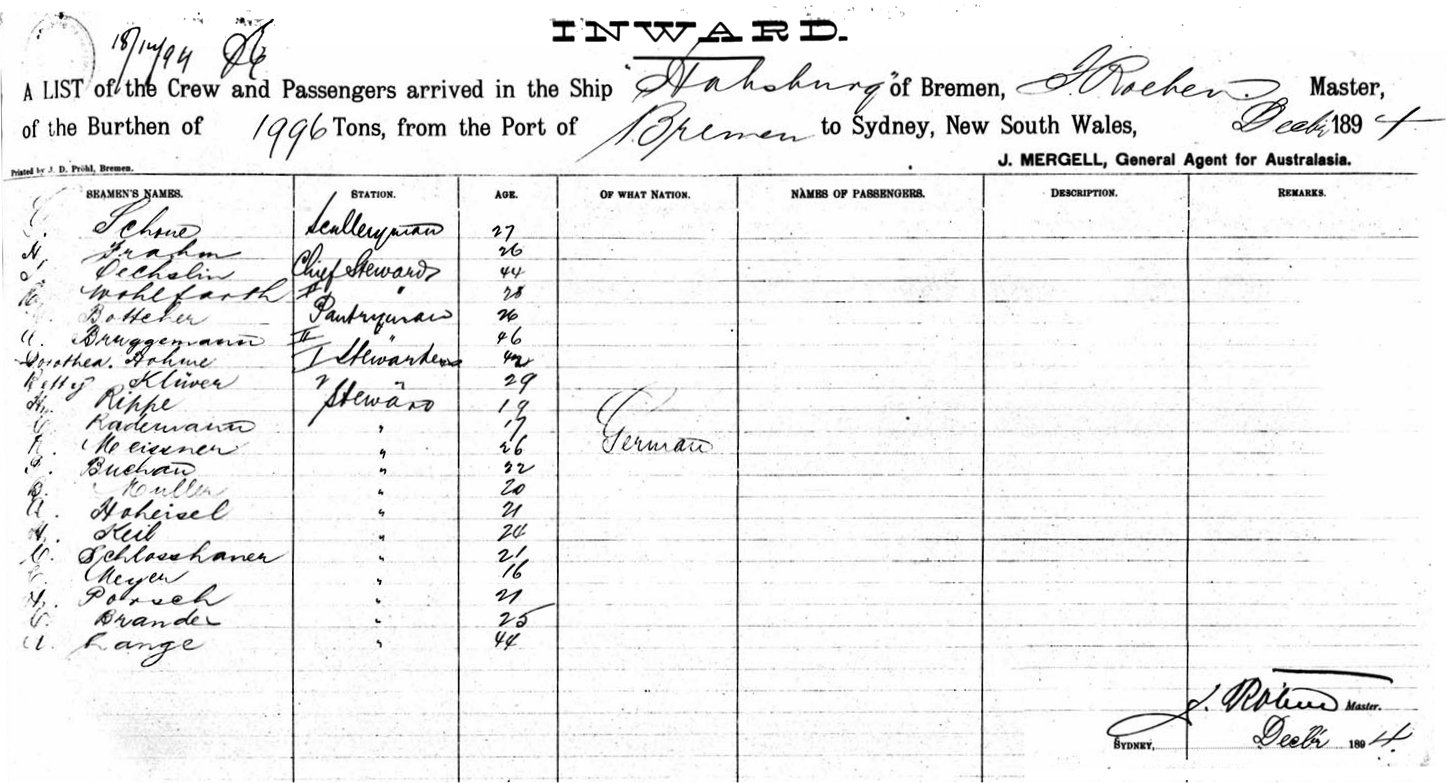 18/12/94
INWARD.
A LIST of the Crew and Passengers arrived in the Ship "Habsburg" of Bremen, J. Roeben. Master,
of the Burthen of 1996 Tons, from the Port of Bremen to Sydney, New South Wales, Decbr 1894
Printed by J. D. Pröhl, Bremen.
J. MERGELL, General Agent for Australasia.
SEAMEN'S NAMES. STATION. AGE. OF WHAT NATION. NAMES OF PASSENGERS. DESCRIPTION. REMARKS.
Schone Sculleryman 27
H. Frahm 26
Oechslin Chief Steward 44
Wohlfarth II " 28
Bottcher Pantryman 26
A. Bruggemann II " 46
Dorothea Hohme I Stewardess 42
Betty Klüver " 29
H. Rippe Steward 19
C. Rademann " 17
R. Meissner " 26 German
Buchan " 22
B. Muller " 20
A. Hoheisel " 21
H. Keil " 24
Schlosshaner " 21
C. Meyer " 16
H. Porsch " 21
C. Brander " 25
A. Lange " 44
J. Röben Master.
SYDNEY, Decbr 1894.